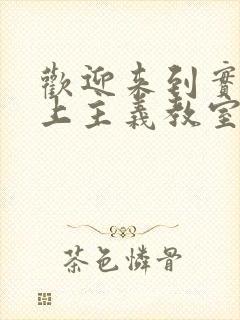 歡迎來到實
上主義教室
茶色憐骨